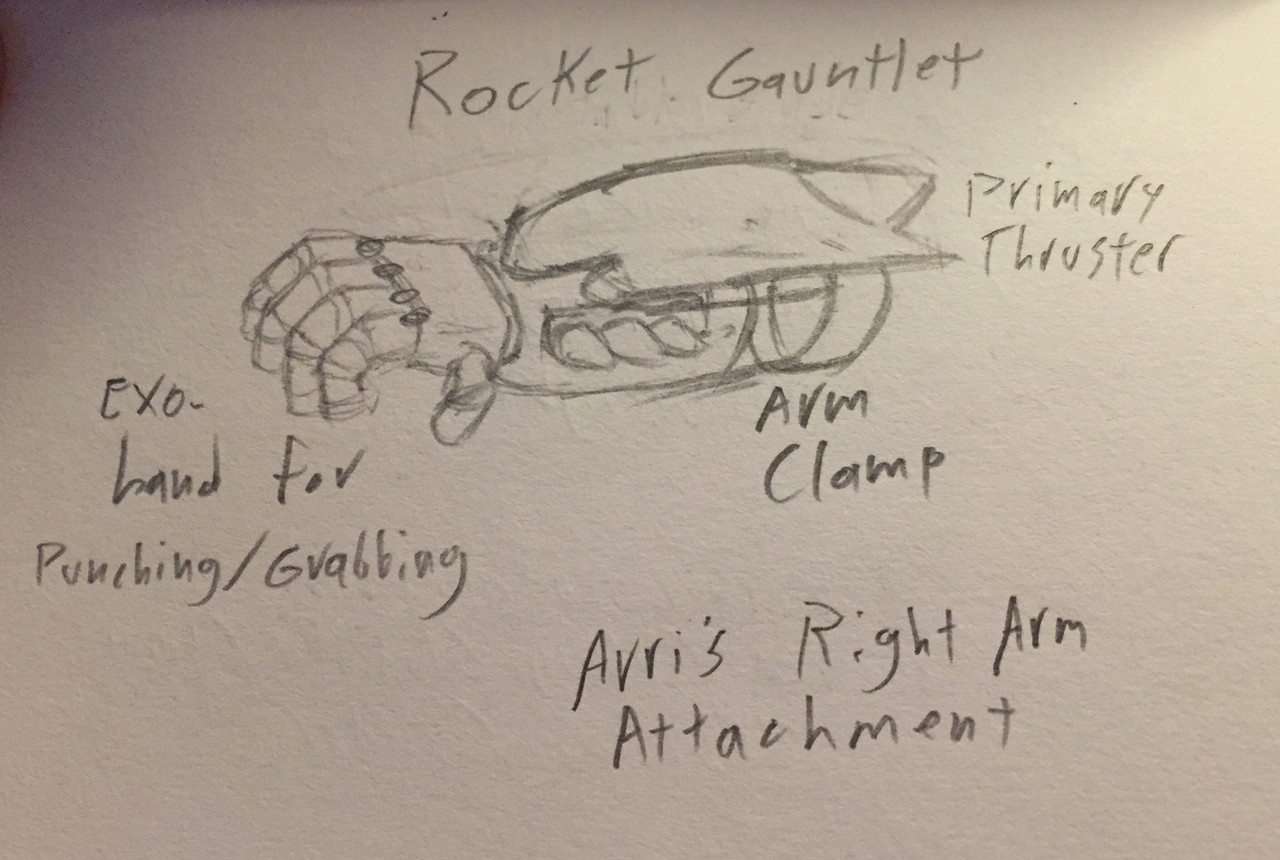 Rocket Gauntlet
Primary
Thruster
Exo-
hand for
Punching/Grabbing
Arm
Clamp
Avri's Right Arm
Attachment